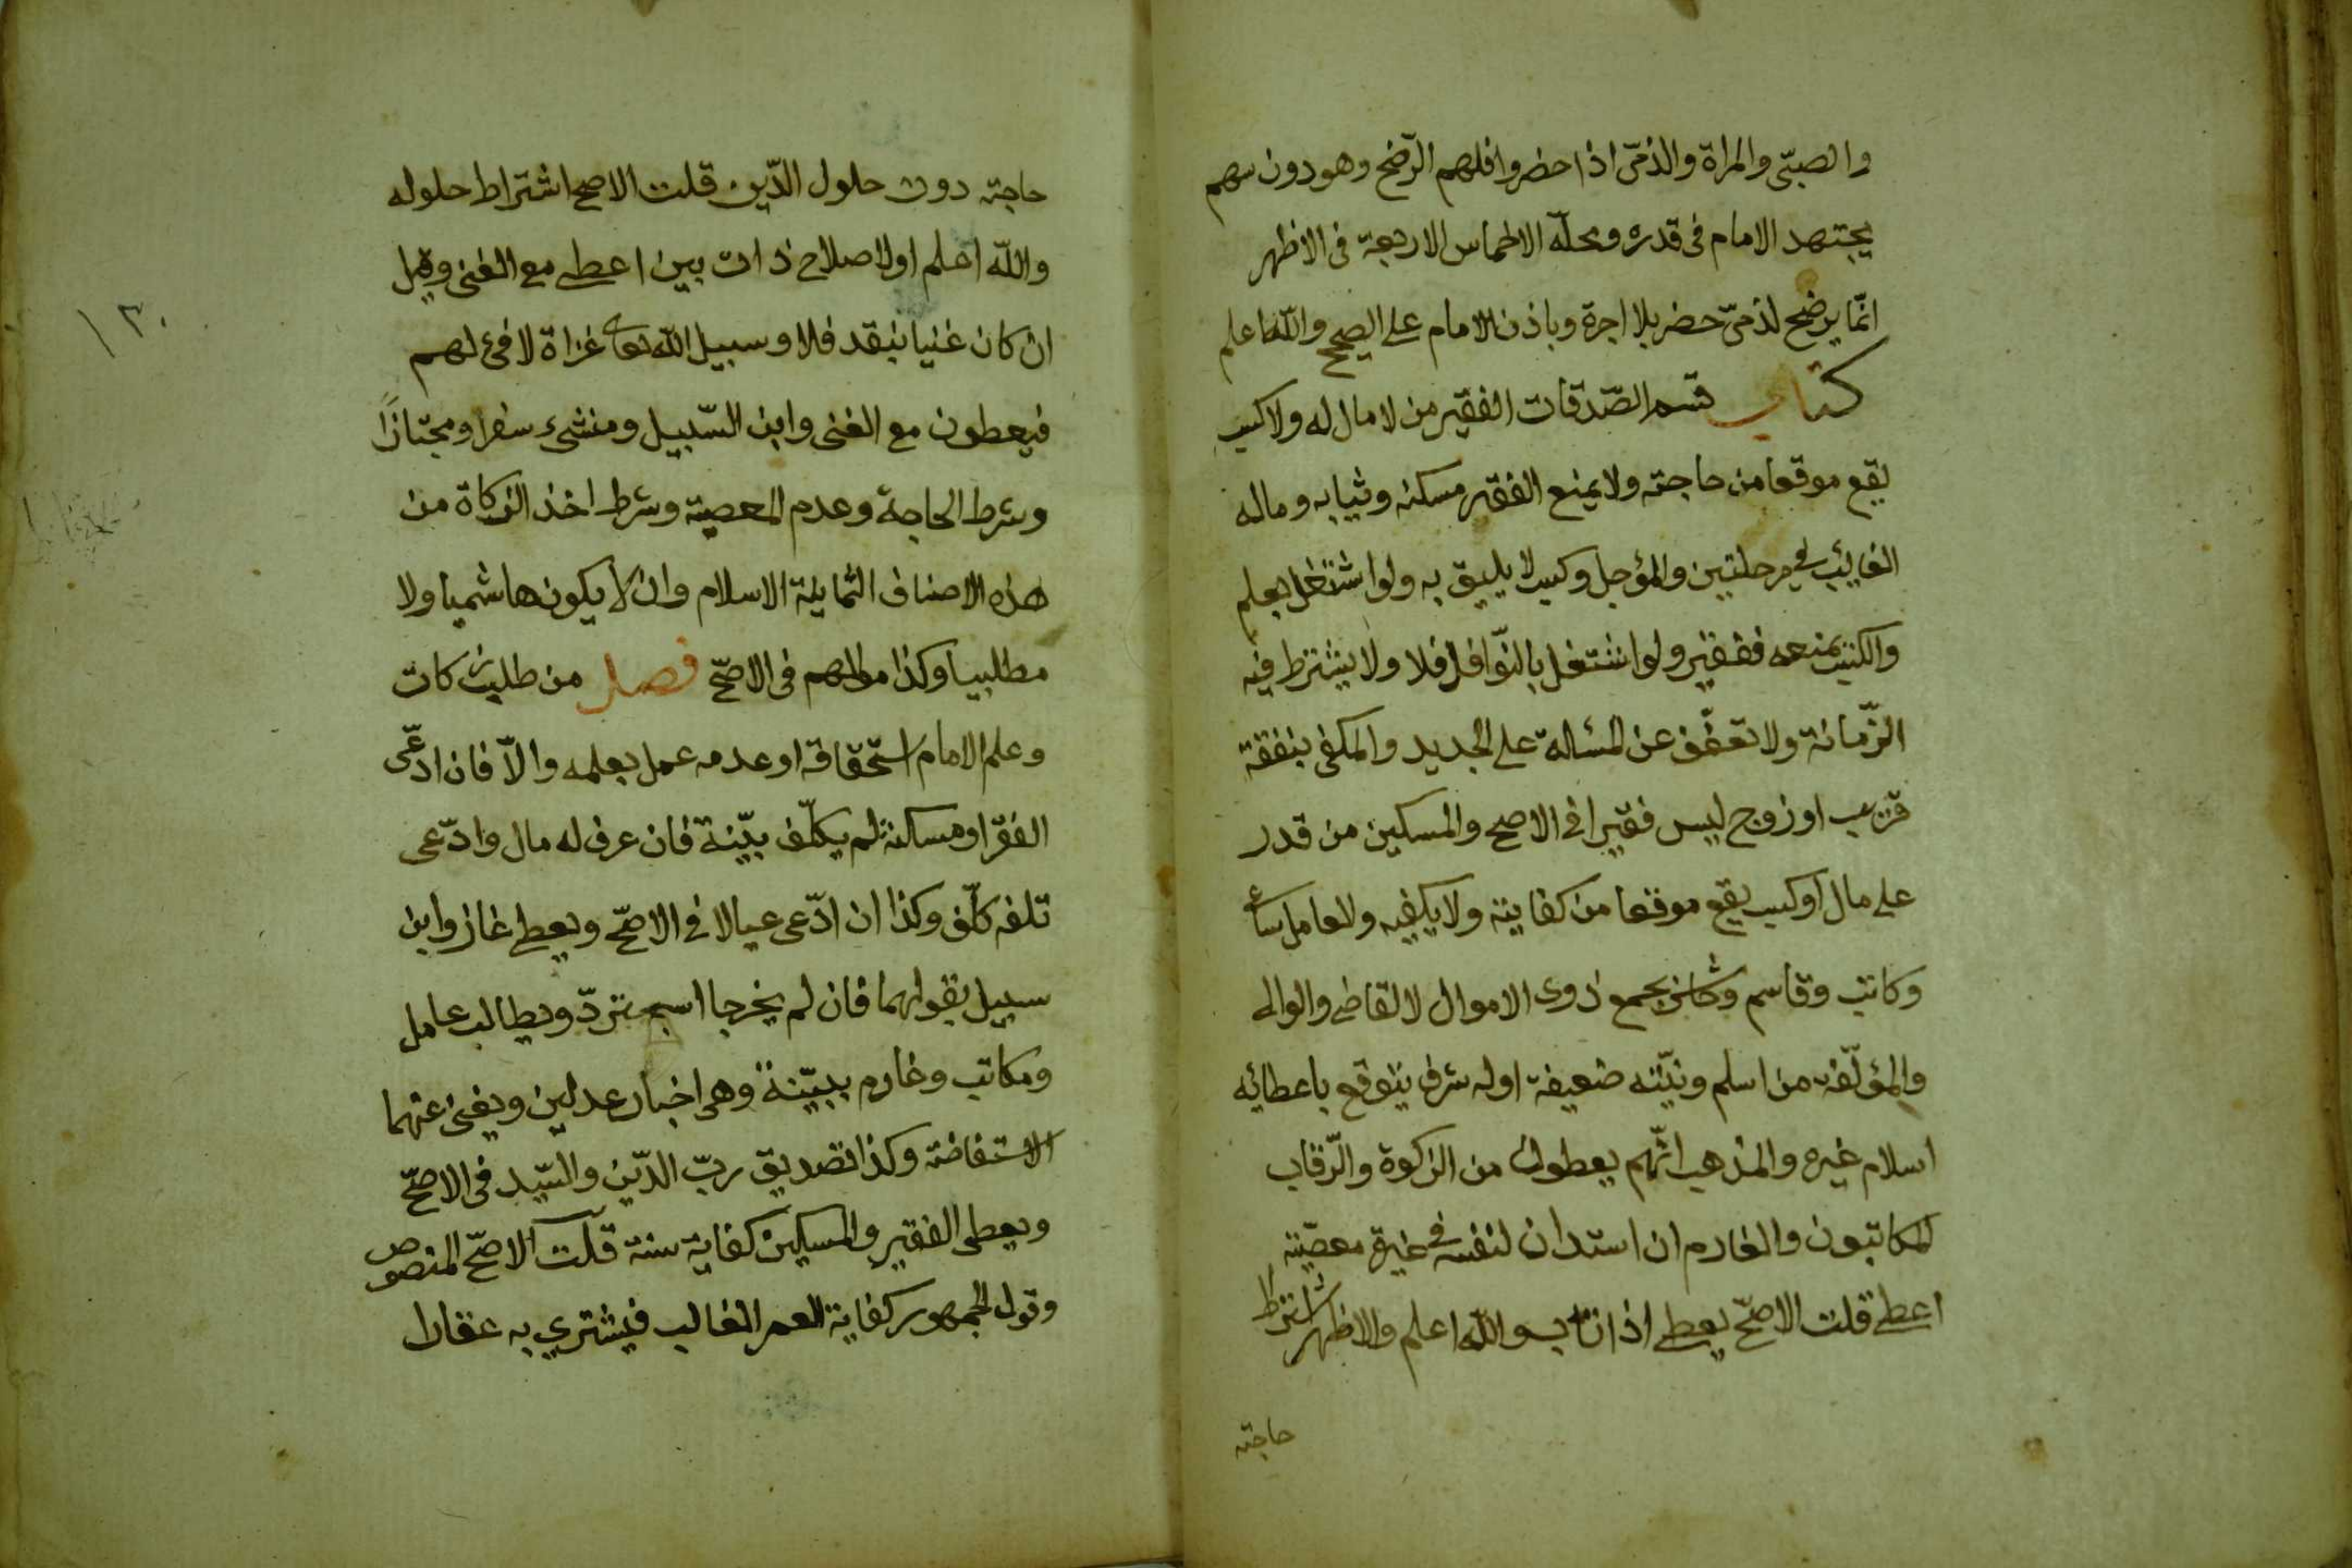 والصبّي والمراة والذمّي اذا حضروا فلهم الرّضخ وهو دون سهم
يجتهد الامام في قدره ومحلّه الاخماس الاربعة في الاظهر
انّما يرضخ لذمّيّ حضر بلا اجرة وباذن الامام على الصحيح والله اعلم
كتاب قسم الصّدقات الفقير من لا مال له ولا كسب
يقع موقعا من حاجته ولا يمنع الفقر مسكنه وثيابه وماله
الغائب في مرحلتين والمؤجل وكسب لا يليق به ولو اشتغل بعلم
والكسب يمنعه ففقير ولو اشتغل بالنّوافل فلا ولا يشترط فيه
الزّمانة ولا تعفّف عن المسالة على الجديد والمكفى بنفقة
قريب او زوج ليس فقيرا في الاصح والمسكين من قدر
على مال او كسب يقع موقعا من كفايته ولا يكفيه ولعامل ساع
وكاتب وقاسم وحاشر يجمع ذوى الاموال لا القاضى والوالى
والمؤلّفة من اسلم ونيّته ضعيفة او له شرف يتوقع باعطائه
اسلام غيره والمذهب انّهم يعطون من الزكوة والرّقاب
المكاتبون والغارم ان استدان لنفسه في غير معصيته
اعطى قلت الاصحّ يعطى اذا تاب والله اعلم والاظهر اشتراط
حاجته
حاجته دون حلول الدّين قلت الاصح اشتراط حلوله
والله اعلم او لاصلاح ذات بين اعطى مع الغنى وقيل
ان كان غنيا بنقد فلا وسبيل الله تعالى غزاة لا فئ لهم
فيعطون مع الغنى وابن السّبيل ومنشىء سفر او مجتازًا
وشرط الحاجة وعدم المعصية وشرط اخذ الزكاة من
هذه الاصناف الثمانية الاسلام وان لا يكون هاشميا ولا
مطلبيا وكذا مولاهم في الاصحّ فصل من طلب زكات
وعلم الامام استحقاقه او عدمه عمل بعلمه والّا فان ادّعى
الفقر او مسكنة لم يكلّف بيّنة فان عرف له مال وادّعى
تلفه كلّف وكذا ان ادّعى عيالا في الاصحّ ويعطى غاز وابن
سبيل بقولهما فان لم يخرجا استردّ ويطالب عامل
ومكاتب وغارم ببيّنة وهى اخبار عدلين ويغنى عنهما
الاستفاضة وكذا تصديق ربّ الدّين والسّيد في الاصحّ
ويعطى الفقير والمسكين كفاية سنة قلت الاصحّ المنصوص
وقول الجمهور كفاية العمر الغالب فيشتري به عقارا
١٣٠